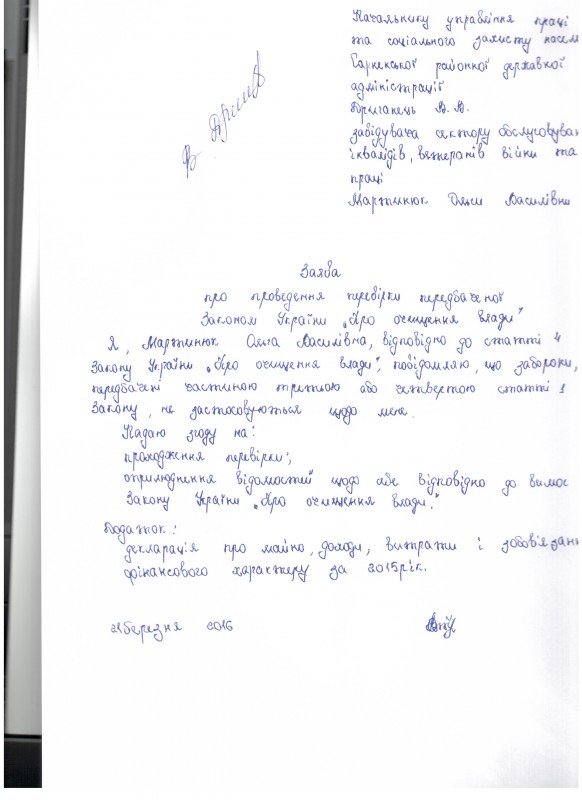 Начальнику управління праці
та соціального захисту насел
районної державної
адміністрації
В. В.
завідувача сектору обслуговуван
інвалідів, ветеранів війни та
праці
Мартинюк Ольги Василівни
Заява
про проведення перевірки передбаченої
Законом України „Про очищення влади"
Я, Мартинюк Ольга Василівна, відповідно до статті 4
Закону України „Про очищення влади", повідомляю, що заборони,
передбачені частиною третьою або четвертою статті 1
Закону, не застосовуються щодо мене.
Надаю згоду на:
проходження перевірки;
оприлюднення відомостей щодо себе відповідно до вимог
Закону України „Про очищення влади."
Додаток:
декларація про майно, доходи, витрати і зобов'язанн
фінансового характеру за 2015 рік.
березня 2016